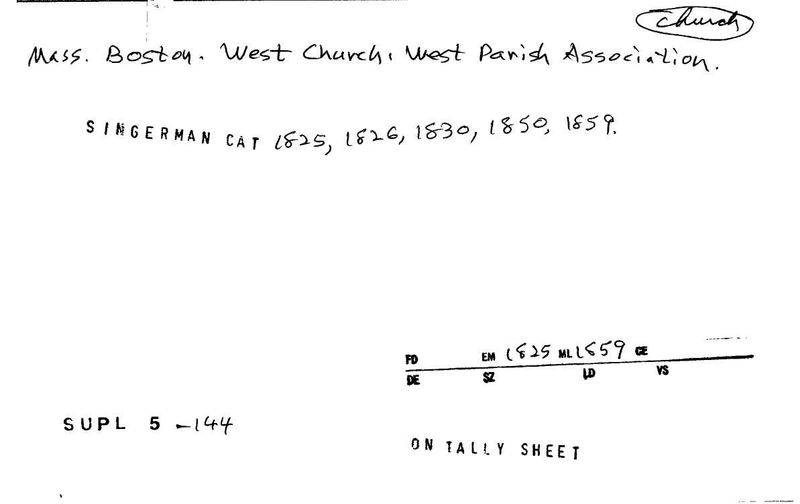 Church
Mass. Boston. West Church. West Parish Association.
SINGERMAN CAT 1825, 1826, 1830, 1850, 1859.
FD EM 1825 ML 1859 CE
DE SZ LD VS
SUPL 5 -144
ON TALLY SHEET